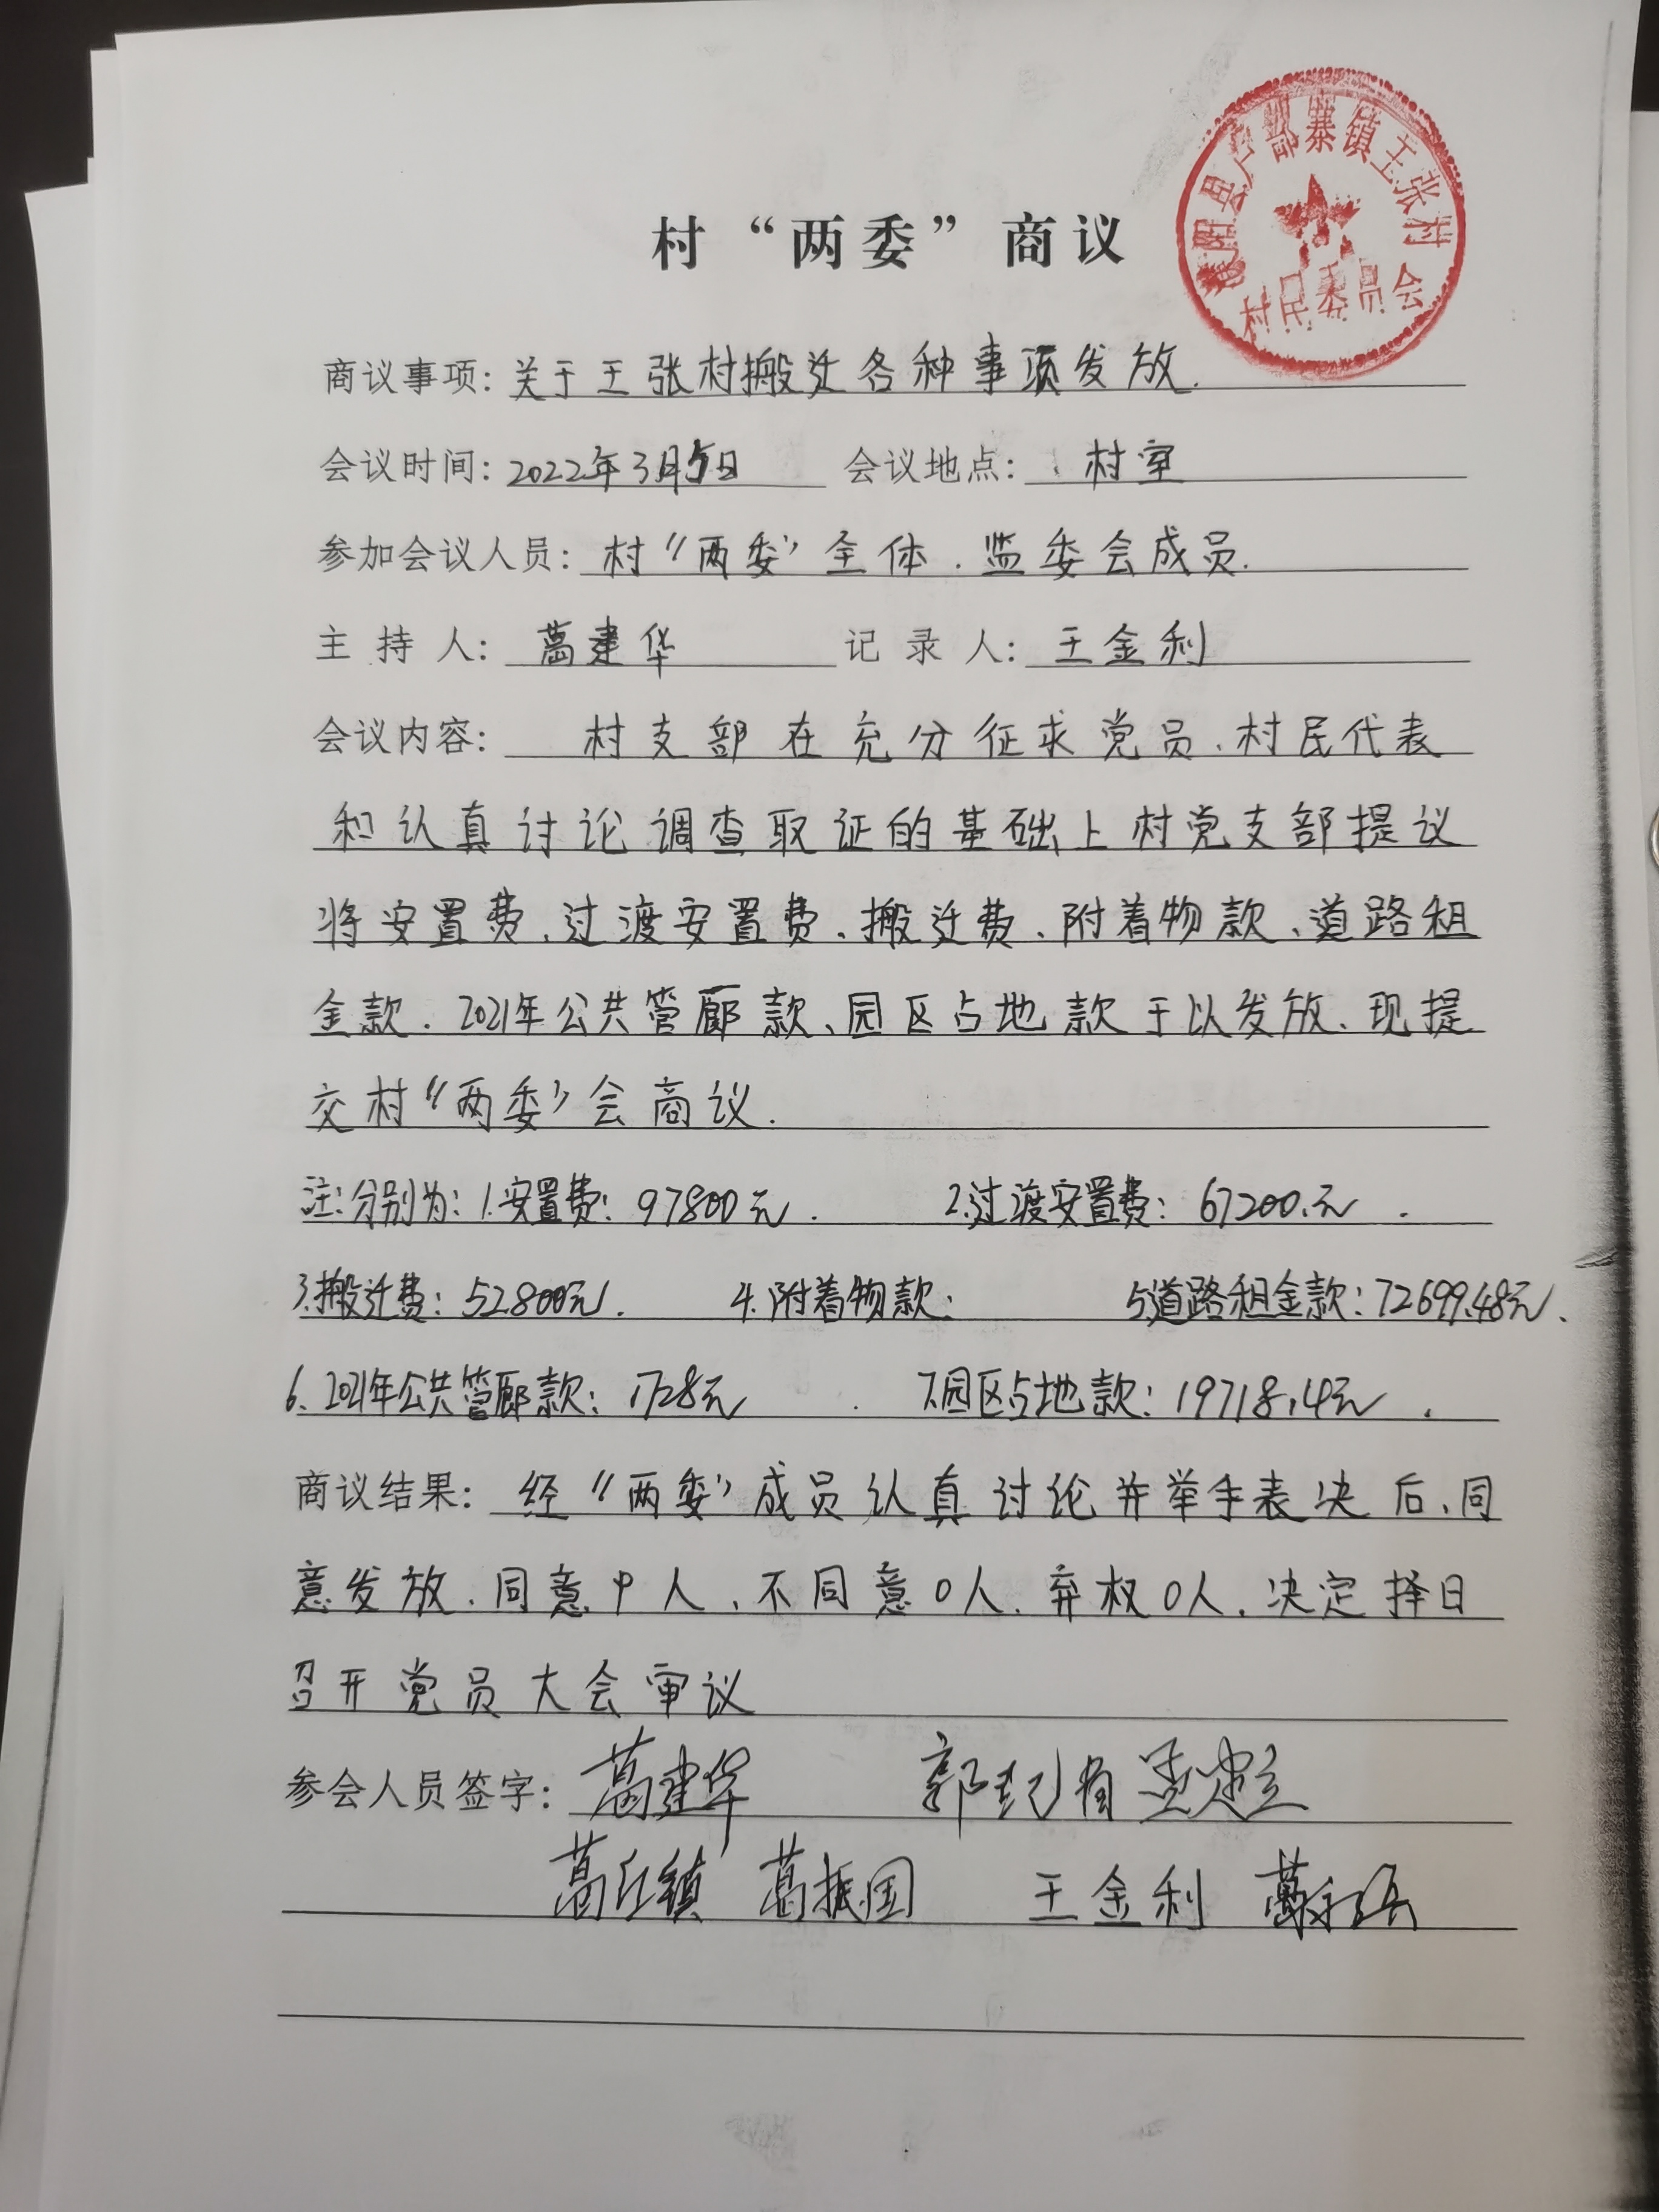 村“两委”商议
濮阳县户部寨镇王张村
村民委员会
商议事项：关于王张村搬迁各种事项发放.
会议时间：2022年3月5日 会议地点：村室
参加会议人员：村“两委”全体、监委会成员.
主持人：葛建华 记录人：王金利
会议内容：村支部在充分征求党员、村民代表
和认真讨论调查取证的基础上村党支部提议
将安置费、过渡安置费、搬迁费、附着物款、道路租
金款、2021年公共管廊款、园区占地款于以发放、现提
交村“两委”会商议.
注：分别为：1.安置费：97800元. 2.过渡安置费：67200.元.
3.搬迁费：52800元. 4.附着物款： 5.道路租金款：72699.48元、
6、2021年公共管廊款：1728元. 7.园区占地款：19718.14元.
商议结果：经“两委”成员认真讨论并举手表决后、同
意发放、同意 人、不同意0人、弃权0人、决定择日
召开党员大会审议
参会人员签字：葛建华 郭
葛 镇 葛振国 王金利